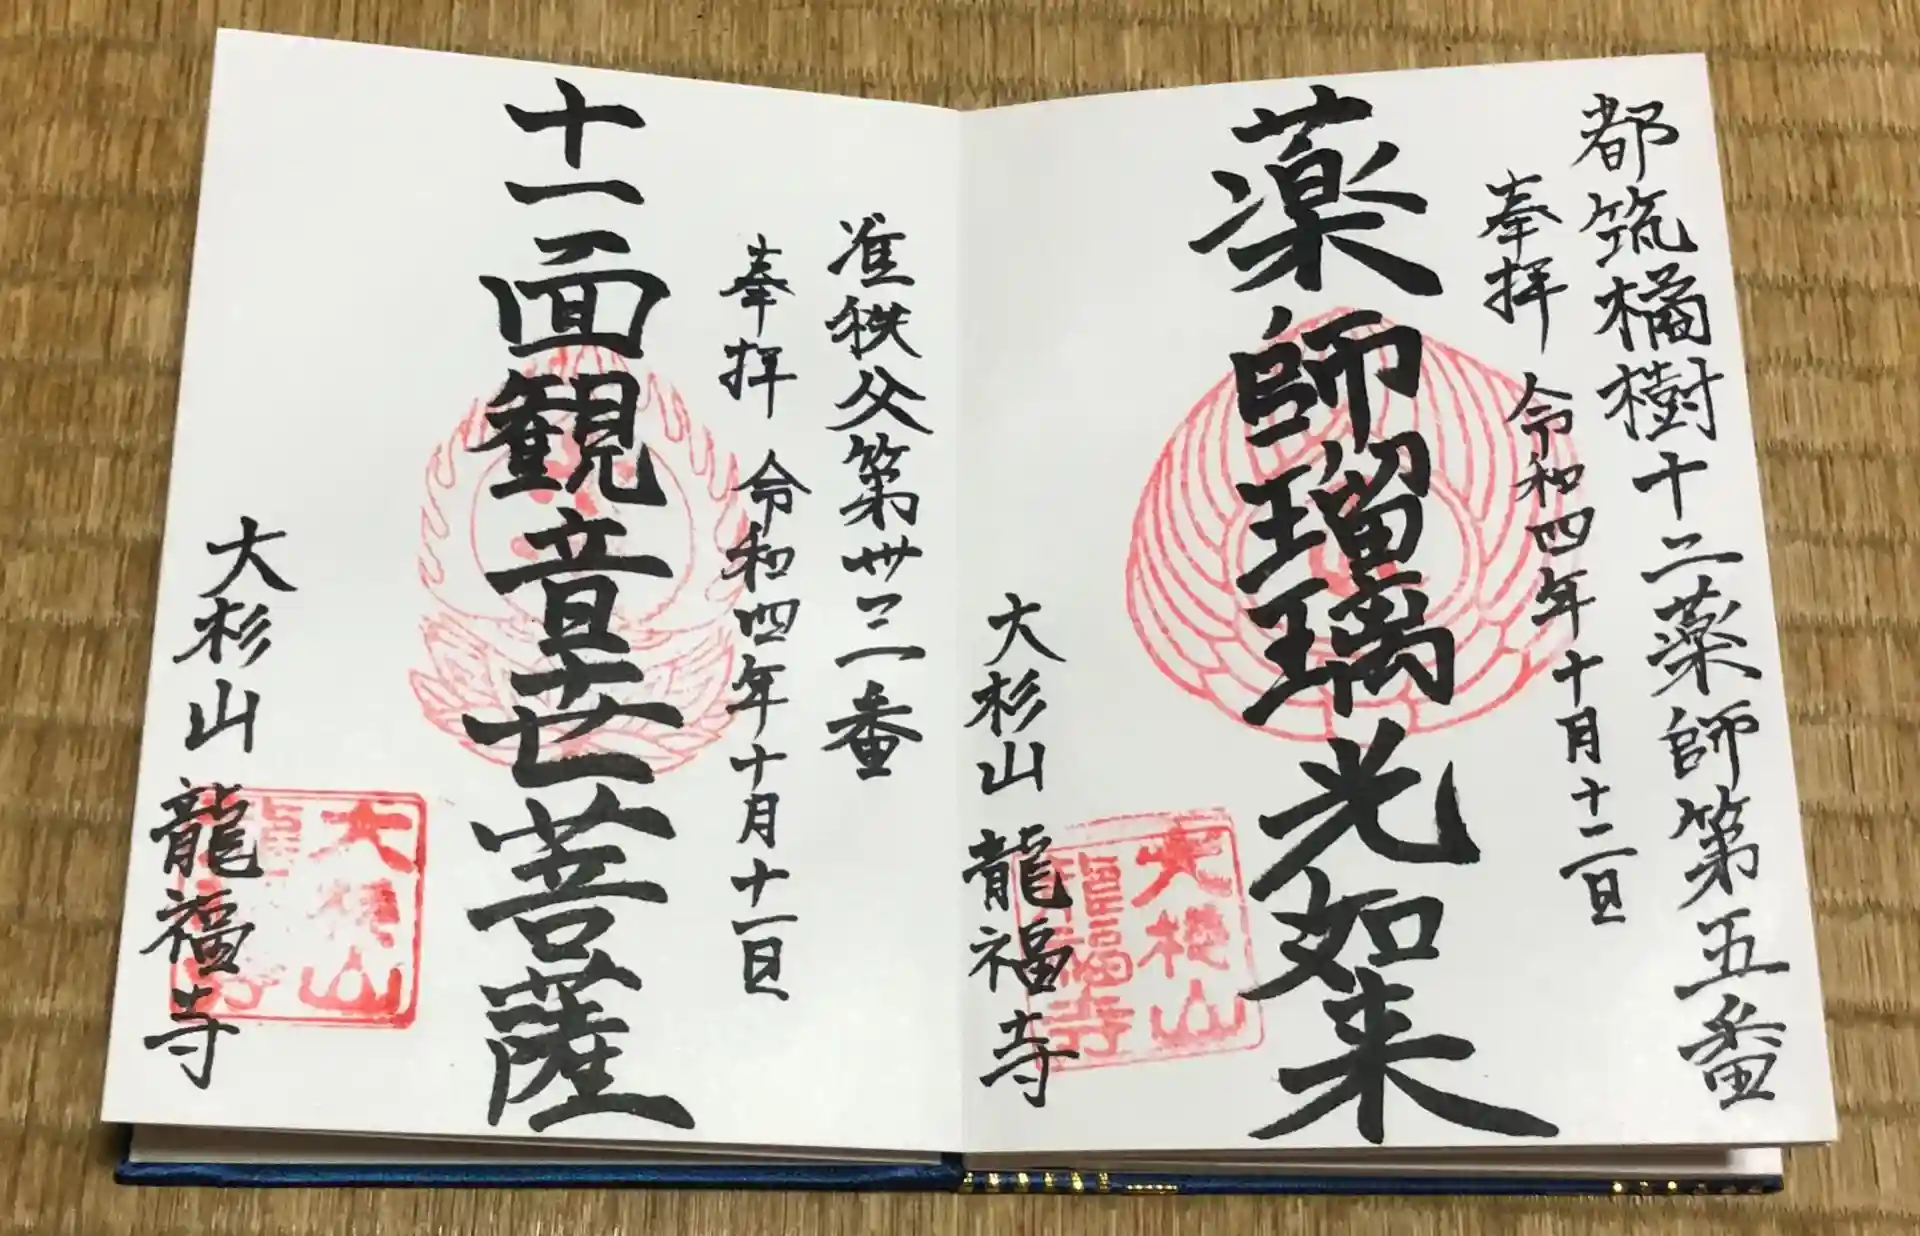 都筑橘樹十二薬師第五番
奉拝 令和四年十月十二日
薬師瑠璃光如来
大杉山 龍福寺
大杉山
龍福寺
准秩父第卅三番
奉拝 令和四年十月十一日
十一面観音世菩薩
大杉山 龍福寺
大杉山